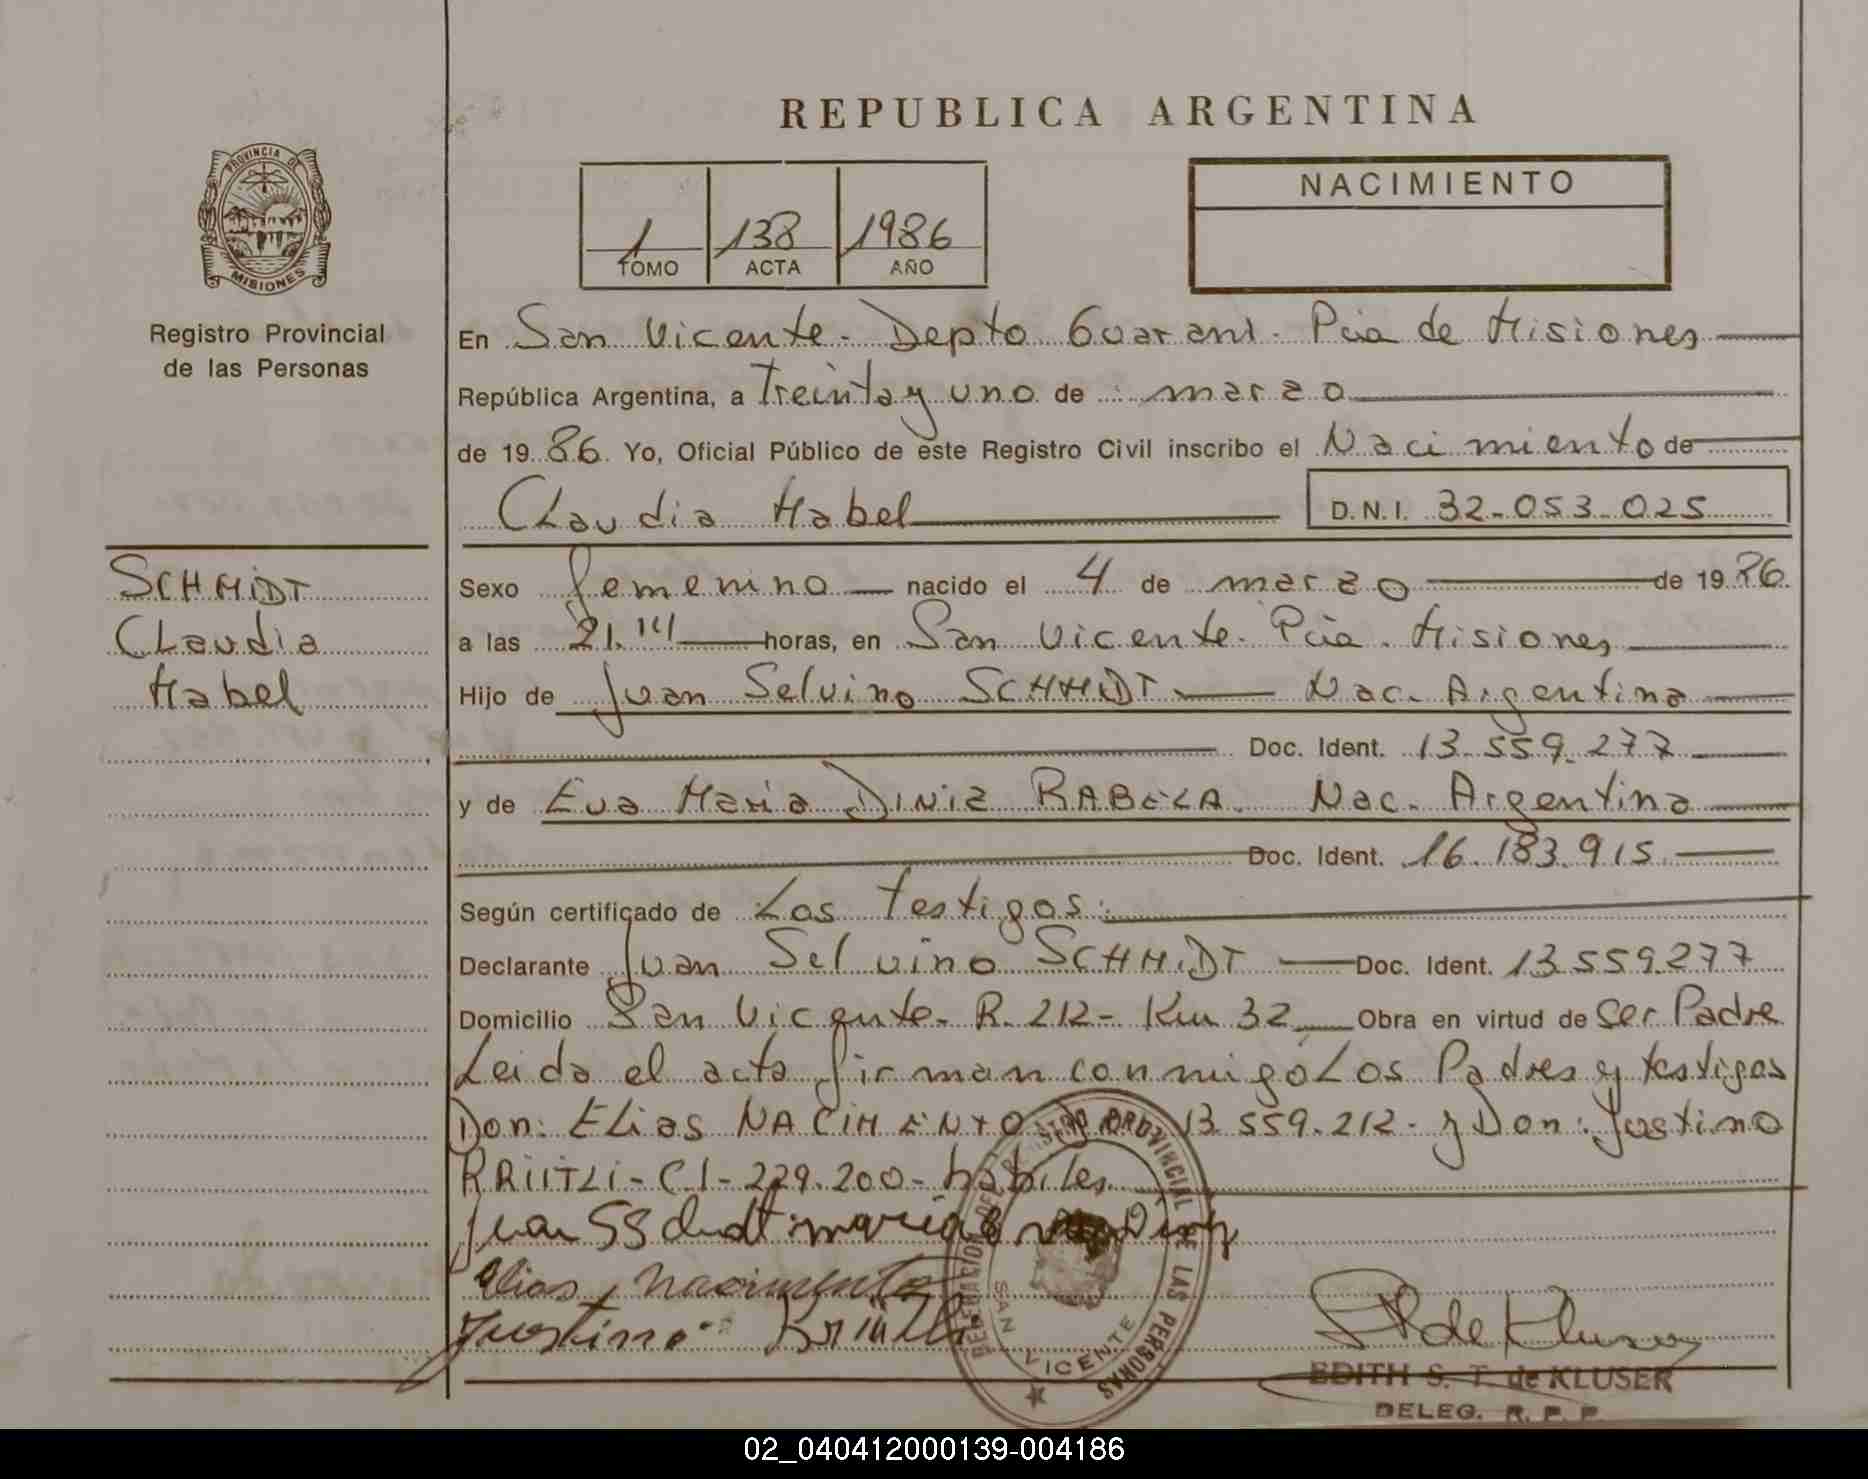 REPUBLICA ARGENTINA
PROVINCIA DE
MISIONES
Registro Provincial
de las Personas
1 138 1986
TOMO ACTA AÑO
NACIMIENTO
En San Vicente - Depto Guarani - Pcia de Misiones
República Argentina, a Treinta y uno de marzo
de 1986. Yo, Oficial Público de este Registro Civil inscribo el Nacimiento de
Claudia Mabel
D.N.I. 32-053-025
SCHMIDT
Claudia
Mabel
Sexo femenino nacido el 4 de marzo de 1986.
a las 21. horas, en San Vicente - Pcia. Misiones
Hijo de Juan Selvino SCHMIDT Nac. Argentina
Doc. Ident. 13.559.277
y de Eva Maria DINIZ Nac. Argentina
Doc. Ident. 16.183.915
Según certificado de Los Testigos:
Declarante Juan Selvino SCHMIDT Doc. Ident. 13.559.277
Domicilio San Vicente - R. 212 - Km 32 Obra en virtud de Ser Padre
Leida el acta firman conmigo Los Padres y testigos
Don: Elias NACIMENTO 13.559.212 - y Don: Justino
- C.I - 229.200 - habiles
Elias Nacimento
Justino
DELEGACION DEL REGISTRO PROVINCIAL DE LAS PERSONAS
SAN VICENTE
EDITH S. T. de KLUSER
DELEG. R. P. P.
02_040412000139-004186